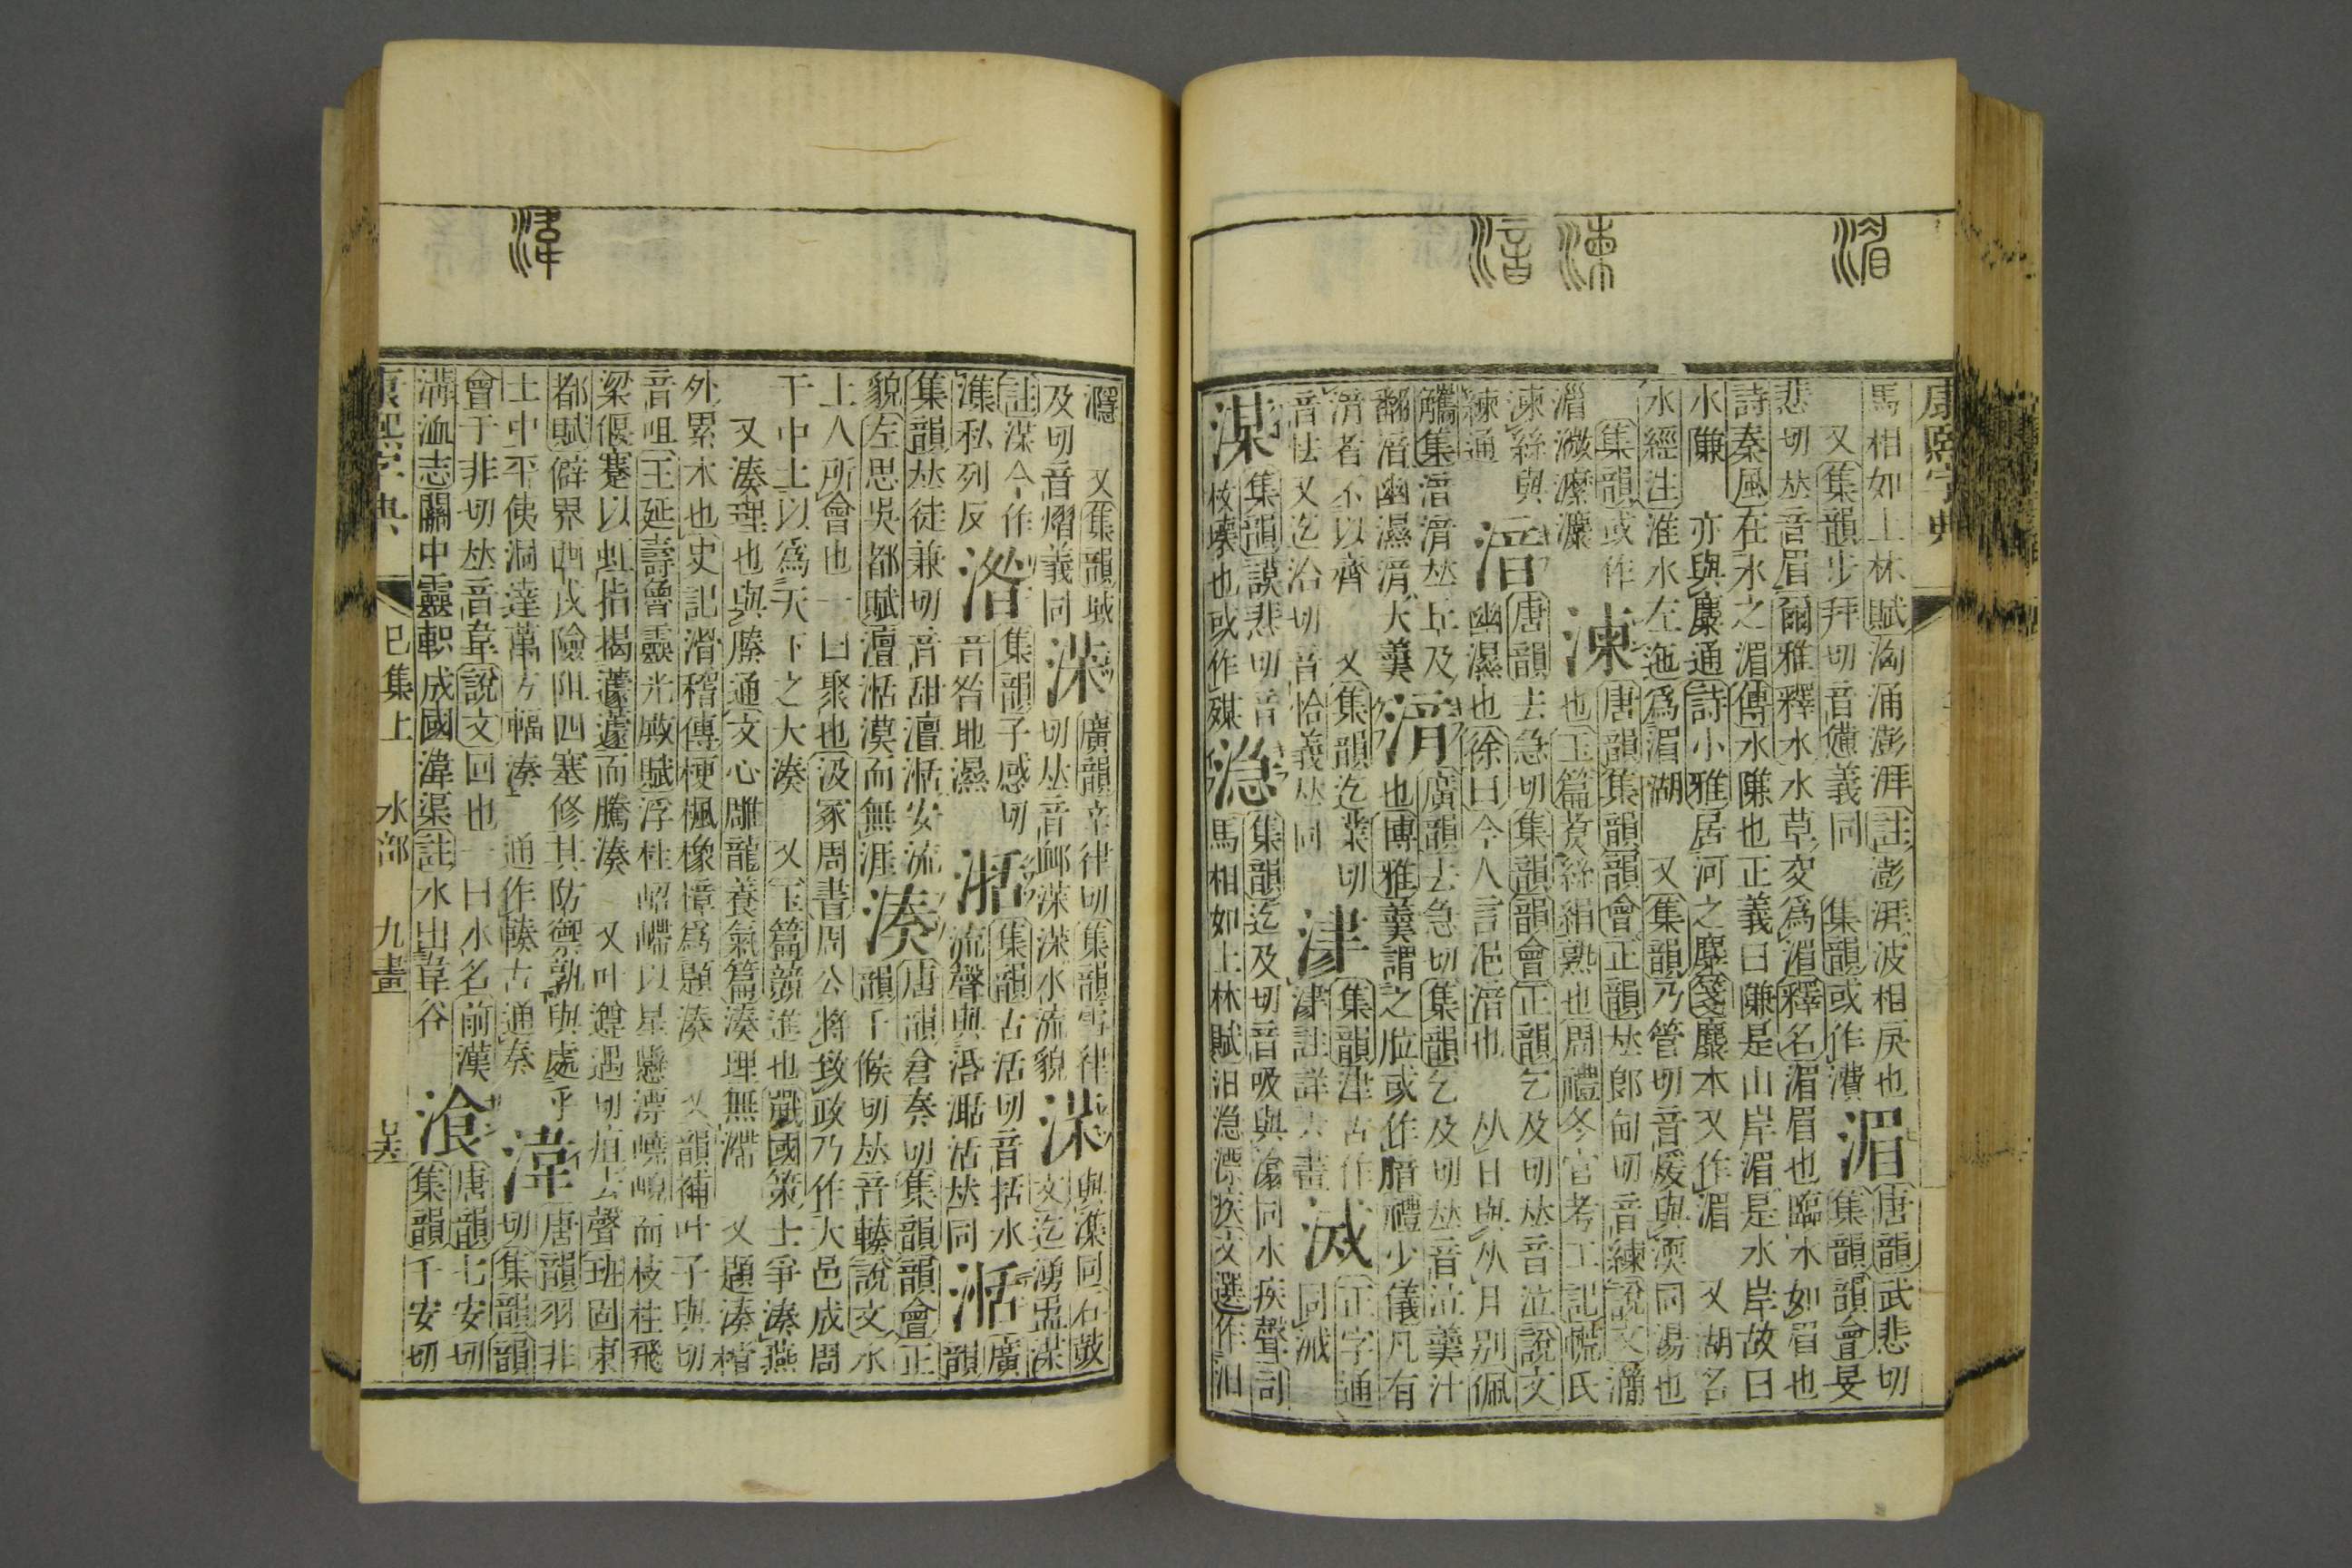 康熙字典
湄
湅
湆
馬相如上林賦洶涌澎湃註澎湃波相戾也 湄 唐韻武悲切
又集韻步拜切音憊義同 集韻或作濆 集韻韻會旻
悲切𠀤音眉爾雅釋水水草交爲湄釋名湄眉也臨水如眉也
詩秦風在水之湄傳水隒也正義曰隒是山岸湄是水岸故曰
水隒 亦與麋通詩小雅居河之麋箋麋本又作湄 又湖名
水經注淮水左迤爲湄湖 又集韻乃管切音煖與渜同湯也
集韻或作 湅 唐韻集韻韻會正韻𠀤郎甸切音練說文㶕
也玉篇煑絲絹熟也周禮冬官考工記㡛氏
湅絲與
練通 湆 唐韻去急切集韻韻會正韻乞及切𠀤音泣說文
幽濕也徐曰今人言浥湆也 从日與从月別佩
觿集湆湇𠀤丘及
翻湆幽濕湇大羹 湇 廣韻去急切集韻乞及切𠀤音泣羹汁
也博雅羹謂之湇或作腤禮少儀凡有
湇者不以齊 又集韻迄業切
音怯又迄洽切音恰義𠀤同 津 集韻津古作
津註詳六畫 滅 正字通
同滅
湈 集韻謨悲切音
枚壞也或作㷬 㴔 集韻迄及切音吸與潝同水疾聲司
馬相如上林賦汨㴔漂疾文選作汩
湋
濦 又集韻域
及切音熠義同 㴊 廣韻辛律切集韻雪律
切𠀤音䘏㴊㴊水流貌 渫 與渫同石鼓
文迄湧盈渫
註渫今作
渫私列反 湭 集韻子感切
音昝地濕 湉 集韻古活切音括水
流聲與湉𣶏活𠀤同 湉 廣韻
集韻𠀤徒兼切音甜澶湉安流
貌左思吳都賦澶湉漠而無涯 湊 唐韻倉奏切集韻韻會正
韻千候切𠀤音輳說文水
上人所會也一曰聚也汲冢周書周公將致政乃作大邑成周
于中土以爲天下之大湊 又玉篇競進也戰國策士爭湊燕
又湊理也與腠通文心雕龍養氣篇湊理無滯 又題湊棺
外累木也史記滑稽傳楩楓橡樟爲題湊 又韻補叶子與切
音咀王延壽魯靈光殿賦浮柱岹嵽以星懸漂嶢𡸣而枝柱飛
梁偃蹇以虹指揭蘧蘧而騰湊 又叶遵遇切疽去聲班固東
都賦僻界西戎險阻四塞修其防禦孰與處乎
土中平夷洞達萬方輻湊 通作輳古通奏 湋 唐韻羽非
切集韻韻
會于非切𠀤音韋說文回也一曰水名前漢
溝洫志關中靈軹成國湋渠註水出韋谷 湌 唐韻七安切
集韻千安切
康熙字典 巳集上 水部 九畫